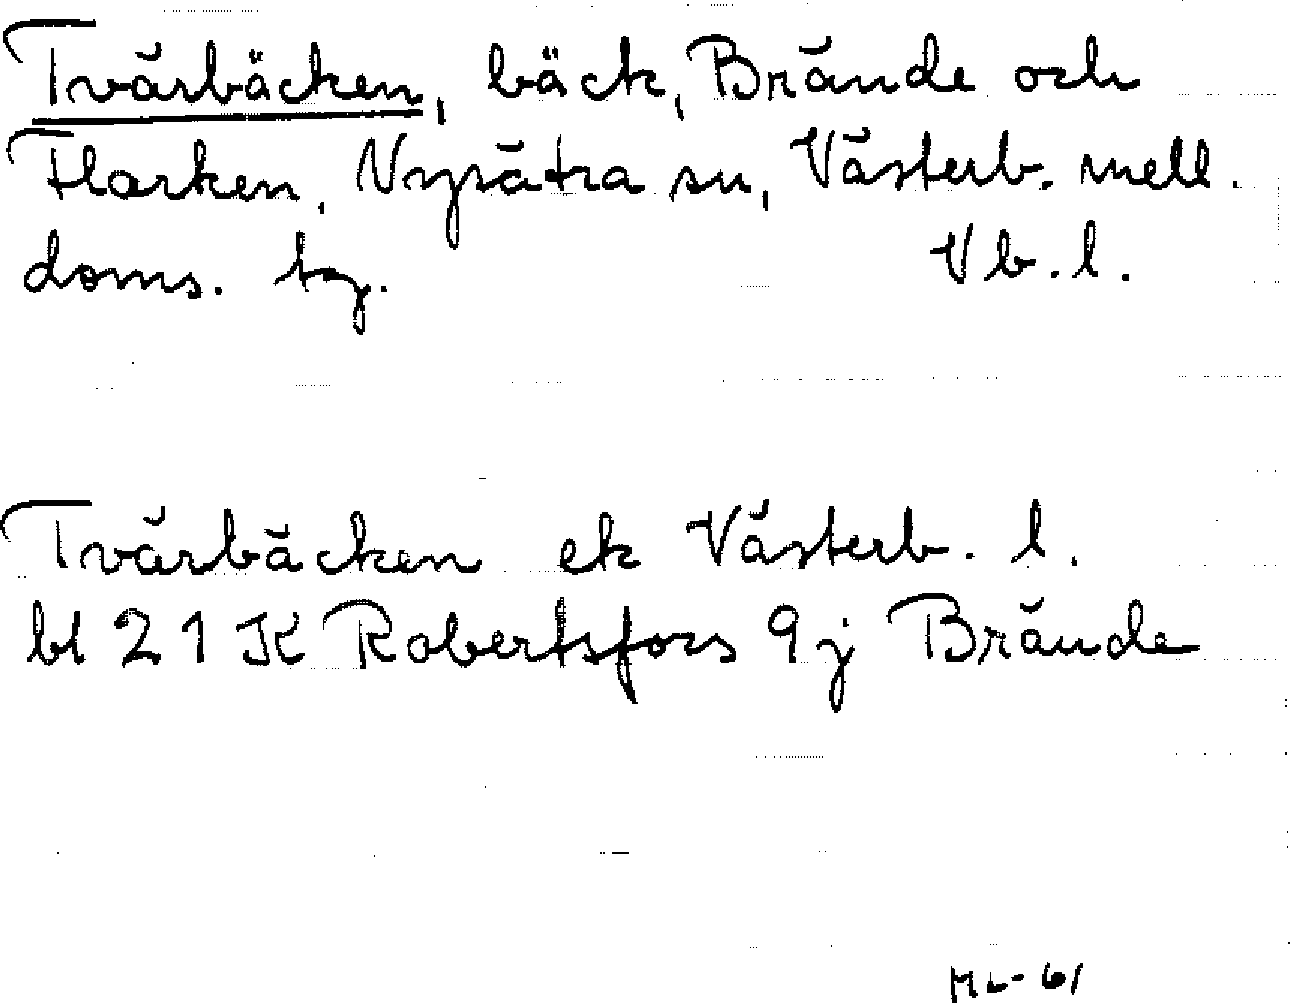 Tvärbäcken, bäck, Brände och
Flarken, Nysätra sn, Västerb. mell.
doms. tg. Vb. l.
Tvärbäcken ek Västerb. l.
bl 21 K Robertsfors 9j Brände
ML-61